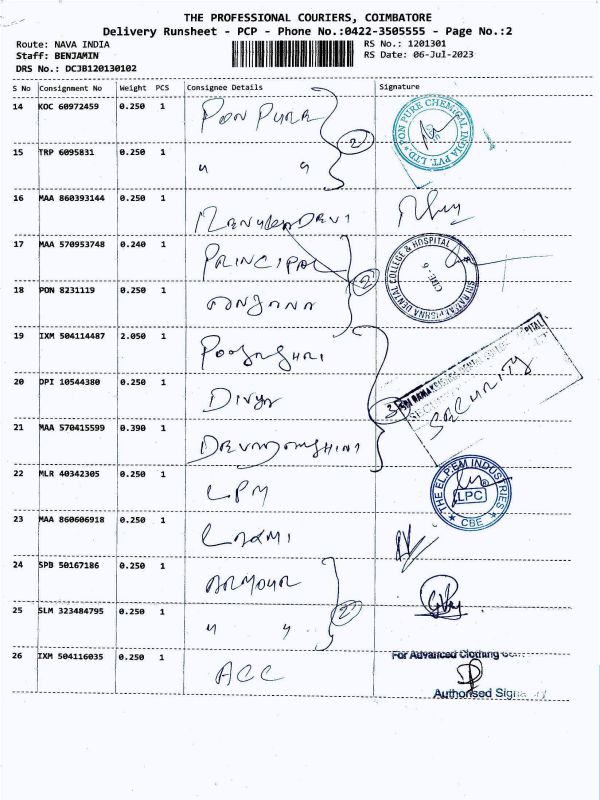 THE PROFESSIONAL COURIERS, COIMBATORE
Delivery Runsheet - PCP - Phone No.:0422-3505555 - Page No.:2
Route: NAVA INDIA RS No.: 1201301
Staff: BENJAMIN RS Date: 06-Jul-2023
DRS No.: DCJB120130102
S No Consignment No Weight PCS Consignee Details Signature
14 KOC 60972459 0.250 1 PON PURE
PON PURE CHEMICAL INDIA PVT. LTD
2
15 TRP 6095831 0.250 1 " "
16 MAA 860393144 0.250 1 DEVI
17 MAA 570953748 0.240 1 PRINCIPAL
SRI RAMAKRISHNA DENTAL COLLEGE & HOSPITAL
CBE - 6
2
18 PON 8231119 0.250 1
19 IXM 504114487 2.050 1
20 DPI 10544380 0.250 1 DIVYA
3
SECURITY
21 MAA 570415599 0.390 1
22 MLR 40342305 0.250 1 LPM
THE EL.P.EM INDUSTRIES
LPC
CBE
23 MAA 860606918 0.250 1 LAXMI
24 SPB 50167186 0.250 1 ARMOUR
2
25 SLM 323484795 0.250 1 " "
26 IXM 504116035 0.250 1 ACC
For Advanced Clothing
Authorised